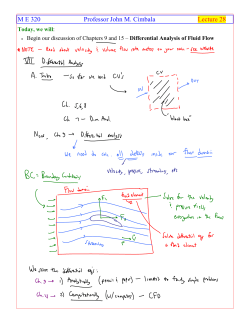 M E 320 Professor John M. Cimbala Lecture 28
Today, we will:
• Begin our discussion of Chapters 9 and 15 – Differential Analysis of Fluid Flow
* NOTE – Read about velocity & volume flow rate meters on your own – see website
VII Differential Analysis
A. Intro – So far we used CV's
CV
in
out
Ch. 5, 6, 8
Ch. 7 – Dim. Anal.
"black box"
Now, Ch 9 → Differential analysis
We need to know all details inside our flow domain
velocity, pressure, streamlines, etc
BC = Boundary Conditions
Flow domain
Fluid element
Solve for the velocity
& pressure fields
everywhere in the flow
Streamlines
Solve differential eqs for
a fluid element
We solve the differential eqs:
Ch. 9 → 1) Analytically (pencil & paper) – limited to fairly simple problems
Ch. 15 → 2) Computationally (w/ computer) – CFD